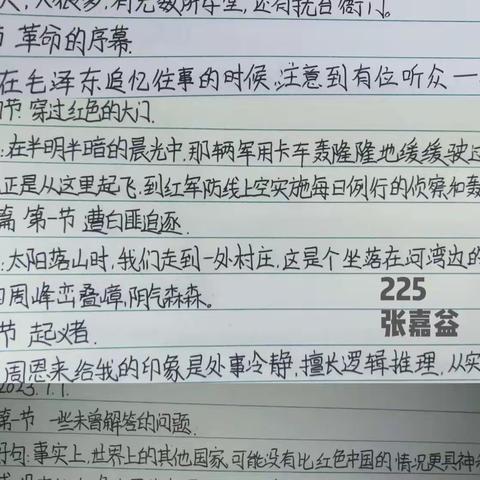 人,人很多,有无数所学堂,还有抚台衙门。
节 革命的序幕.
在毛泽东追忆往事的时候,注意到有位听众一
节 穿过红色的大门.
:在半明半暗的晨光中,那辆军用卡车轰隆隆地缓缓驶过
正是从这里起飞,到红军防线上空实施每日例行的侦察和轰
篇 第一节 遭白匪追逐.
:太阳落山时,我们走到一处村庄,这是个坐落在河湾边的
周峰峦叠嶂,阴气森森。
225
张嘉益
节 起义者.
周恩来给我的印象是处事冷静,擅长逻辑推理,从实
2023.1.1.
第一节 一些未曾解答的问题.
好句:事实上,世界上的其他国家,可能没有比红色中国的情况更具神